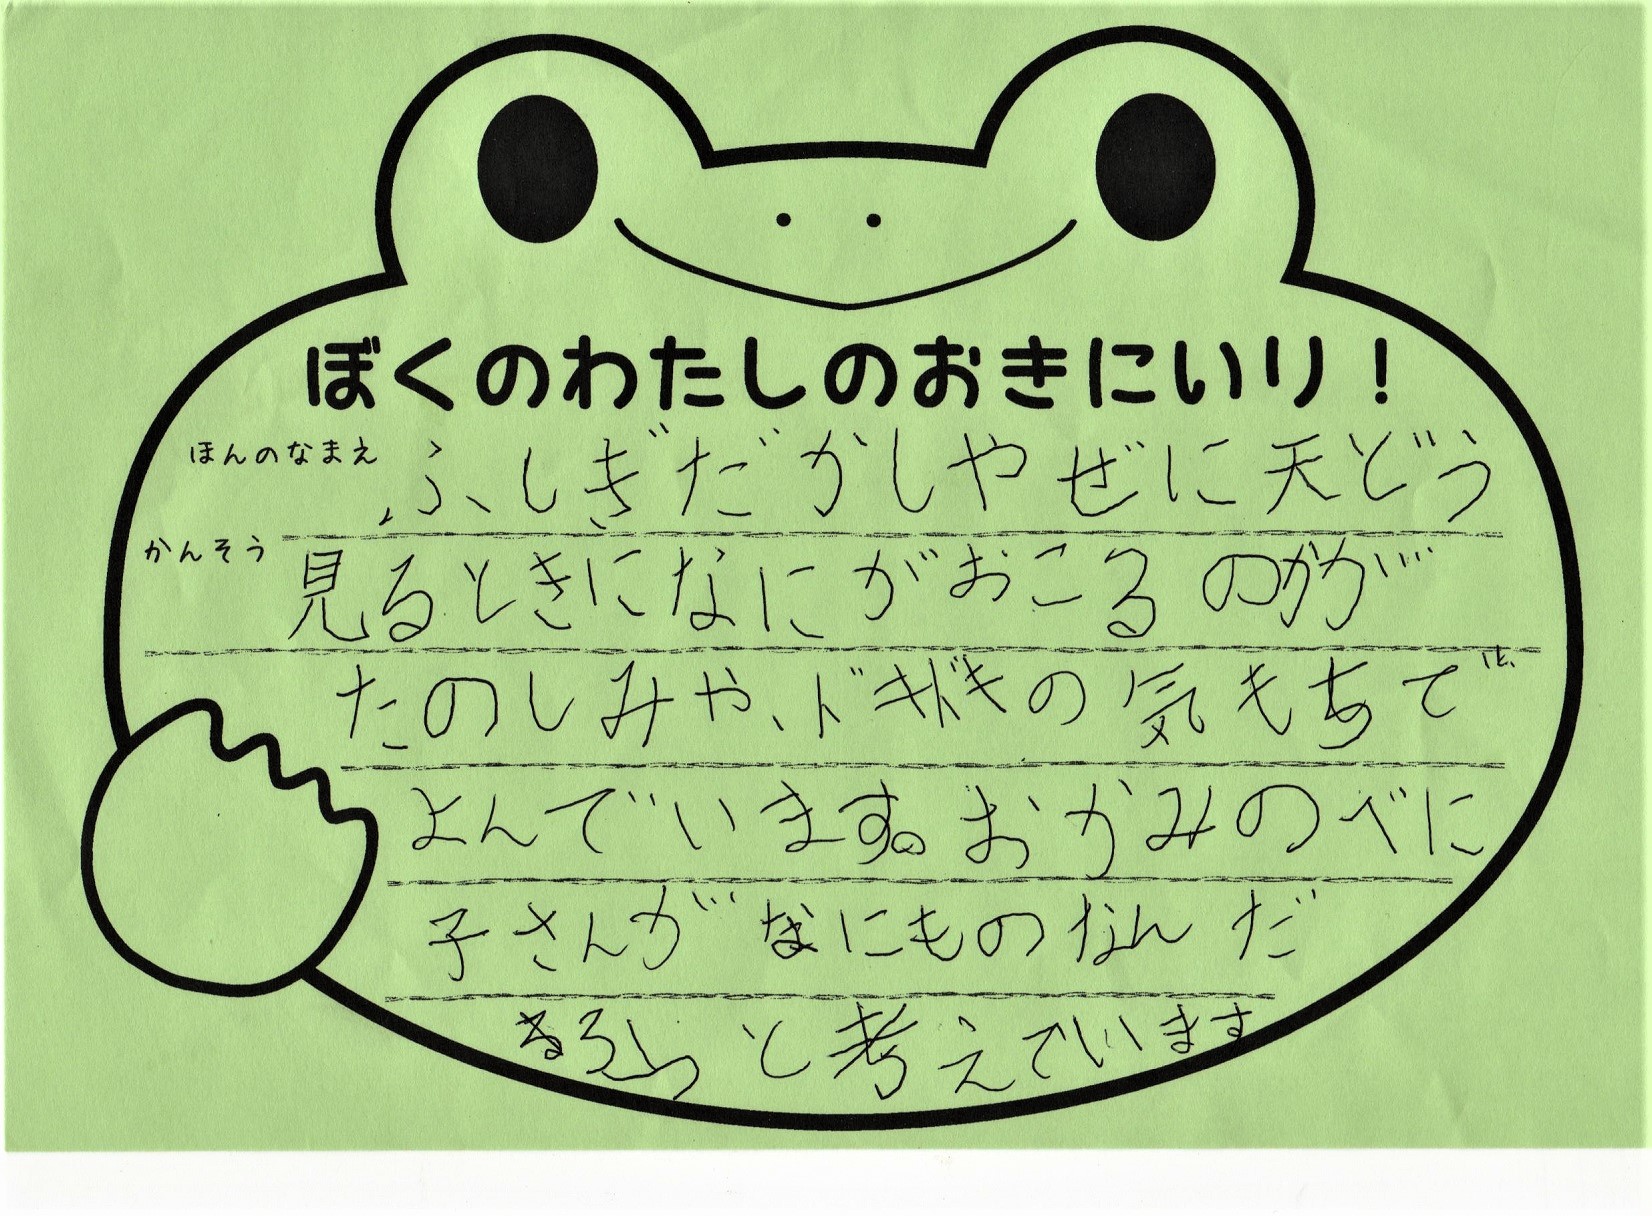 ぼくのわたしのおきにいり！
ほんのなまえ ふしぎだがしやぜに天どう
かんそう 見るときになにがおこるのかが
たのしみや、ドキドキの気もちで
よんでいます。おかみのべに
子さんがなにものなんだ
ろう と考えています